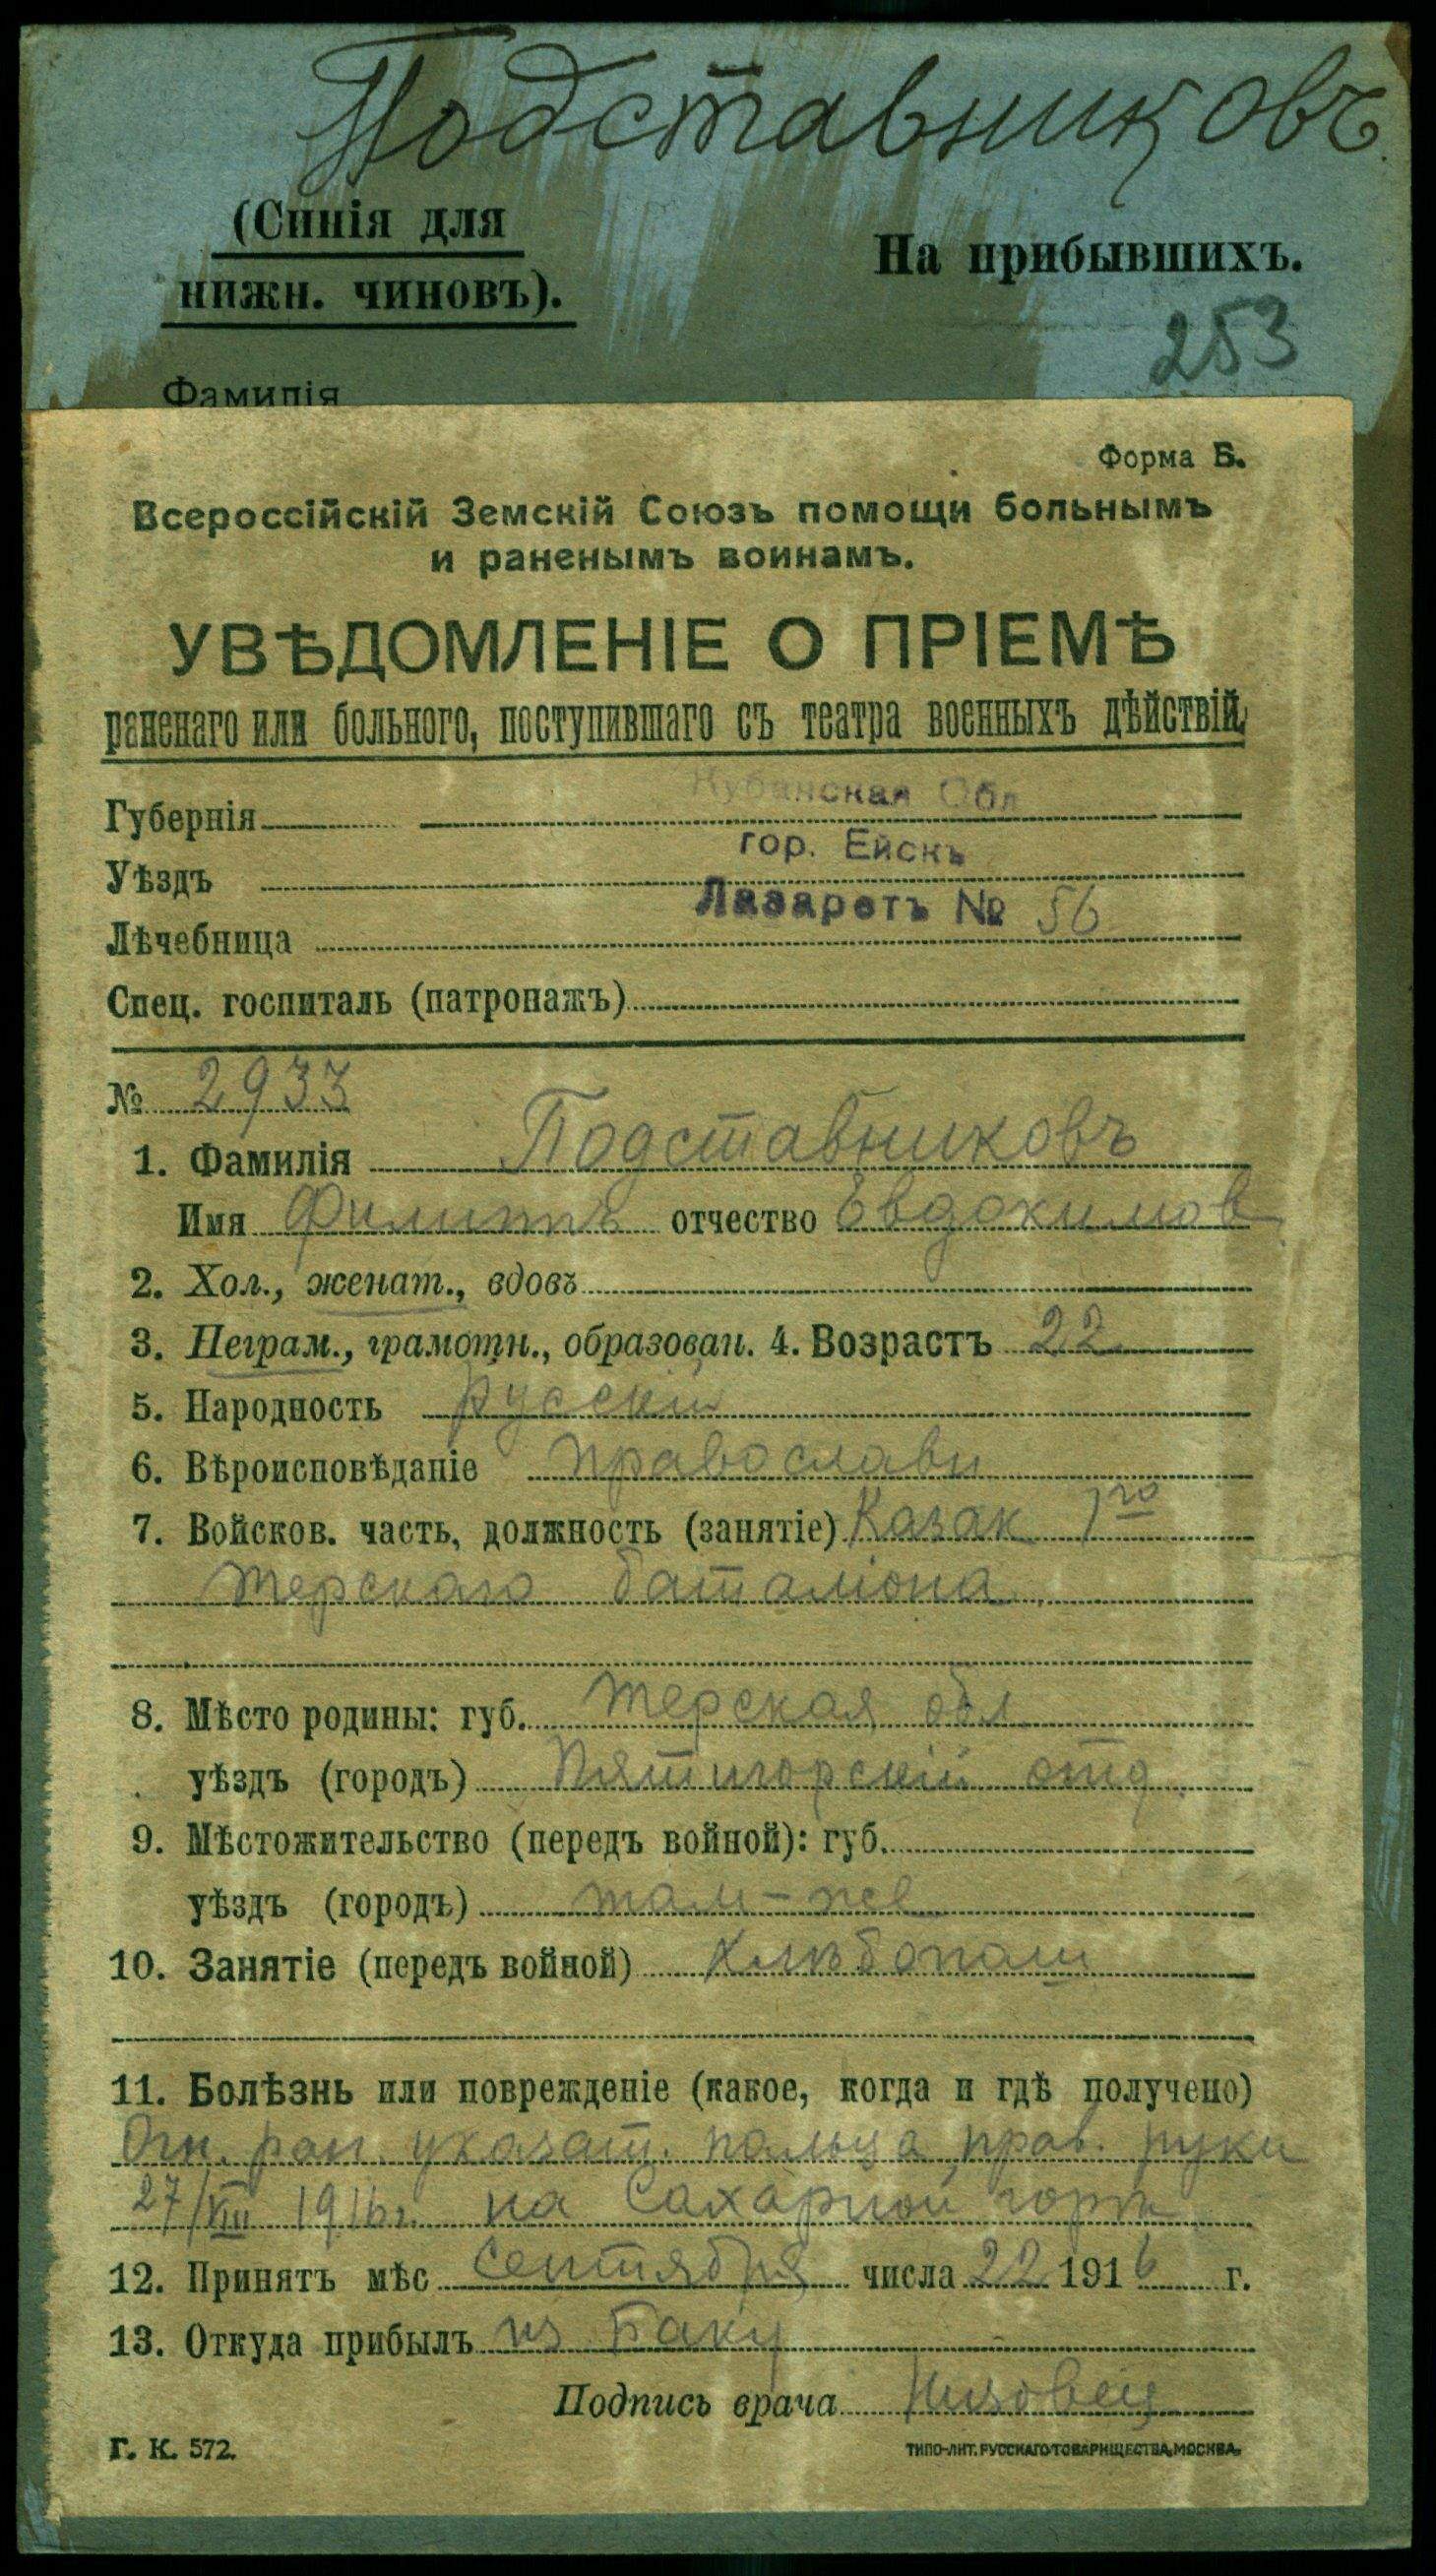 Подставниковъ
(Синія для
нижн. чиновъ).
На прибывшихъ.
253
Фамилія
Форма Б.
Всероссійскій Земскій Союзъ помощи больнымъ
и раненымъ воинамъ.
УВѢДОМЛЕНІЕ О ПРІЕМѢ
раненаго или больного, поступившаго съ театра военныхъ дѣйствій.
Губернія Кубанская Обл
Уѣздъ гор. Ейскъ
Лѣчебница Лазаретъ № 56
Спец. госпиталь (патронажъ)
№ 2933
1. Фамилія Подставниковъ
Имя Филиппъ отчество Евдокимов
2. Хол., женат., вдовъ
3. Неграм., грамотн., образован. 4. Возрастъ 22
5. Народность русскій
6. Вѣроисповѣданіе православн
7. Войсков. часть, должность (занятіе) Казак 1го
терскаго баталіона
8. Мѣсто родины: губ. терская обл
уѣздъ (городъ) Пятигорскій отд.
9. Мѣстожительство (передъ войной): губ.
уѣздъ (городъ) там-же
10. Занятіе (передъ войной) хлѣбопаш
11. Болѣзнь или поврежденіе (какое, когда и гдѣ получено)
Огн. ран. указат. пальца прав. руки
27/VIII 1916г. на Сахарной горѣ
12. Принятъ мѣс сентября числа 22 1916 г.
13. Откуда прибылъ из Баку
Подпись врача Низовец
Г. К. 572.
ТИПО-ЛИТ. РУССКАГО ТОВАРИЩЕСТВА, МОСКВА.